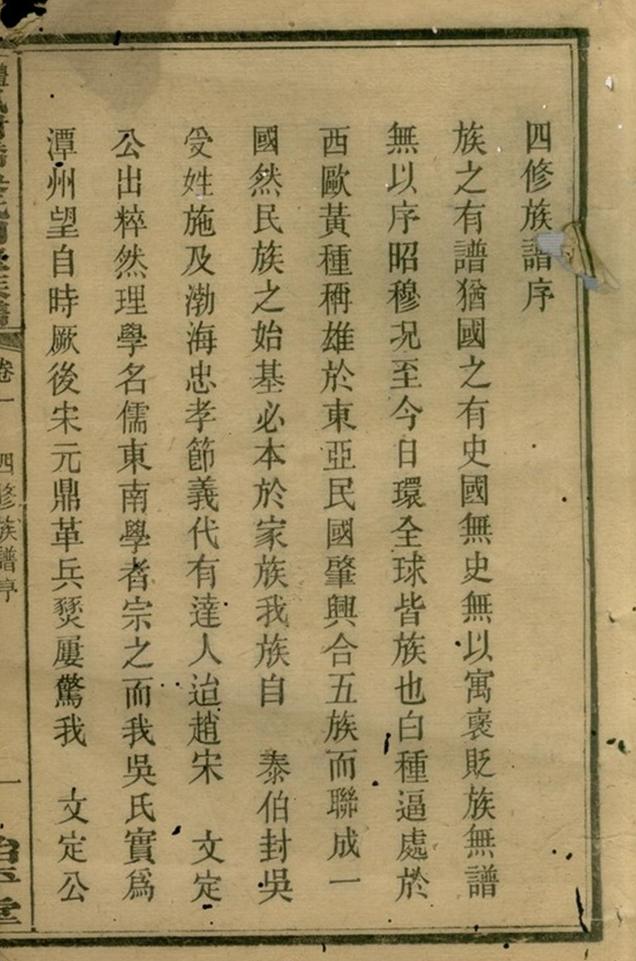 四修族譜序
族之有譜猶國之有史國無史無以寓褒貶族無譜
無以序昭穆況至今日環全球皆族也白種逼處於
西歐黃種稱雄於東亞民國肇興合五族而聯成一
國然民族之始基必本於家族我族自　泰伯封吳
受姓施及渤海忠孝節義代有達人迨趙宋　文定
公出粹然理學名儒東南學者宗之而我吳氏實為
潭州望自時厥後宋元鼎革兵燹屢驚我　文定公
卷一　四修族譜序　一